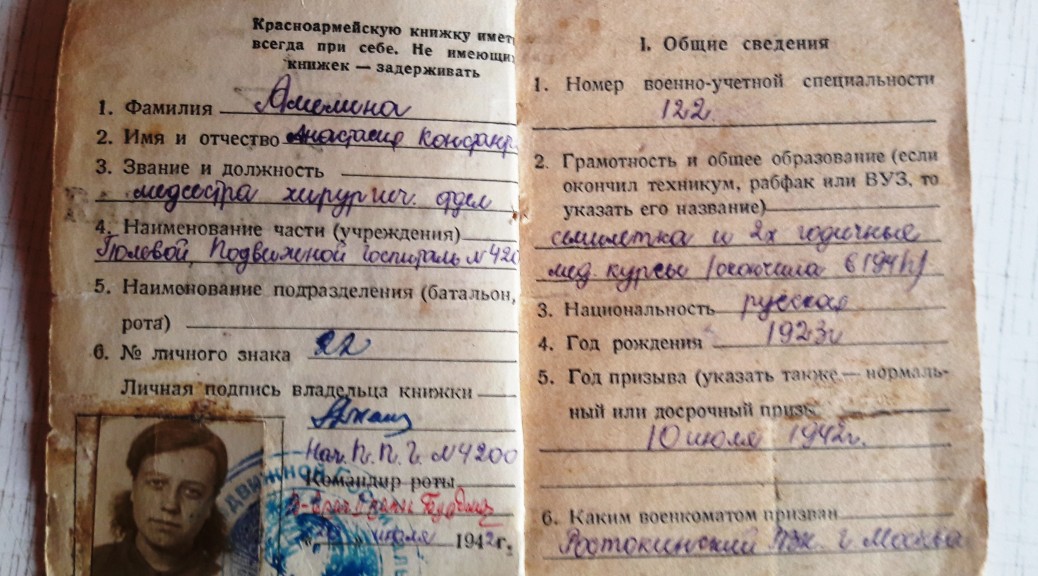 Красноармейскую книжку имет
всегда при себе. Не имеющи
книжек — задерживать
1. Фамилия
2. Имя и отчество Анастасия Констанр
3. Звание и должность
медсестра хирургич. отдел
4. Наименование части (учреждения)
Полевой Подвижной госпиталь №420
5. Наименование подразделения (батальон,
рота)
6. № личного знака 22
Личная подпись владельца книжки
Нач. П.П.Г. №4200
Командир роты
июля 1942г.
ДВИЖНОЙ Г
I. Общие сведения
1. Номер военно-учетной специальности
122.
2. Грамотность и общее образование (если
окончил техникум, рабфак или ВУЗ, то
указать его название)
семилетка и 2х годичные
мед. курсы (окончила в 194
3. Национальность русская
4. Год рождения 1923г
5. Год призыва (указать также — нормаль-
ный или досрочный призы
10 июля 1942г.
6. Каким военкоматом призван
Ростокинский РВК. г. Москва